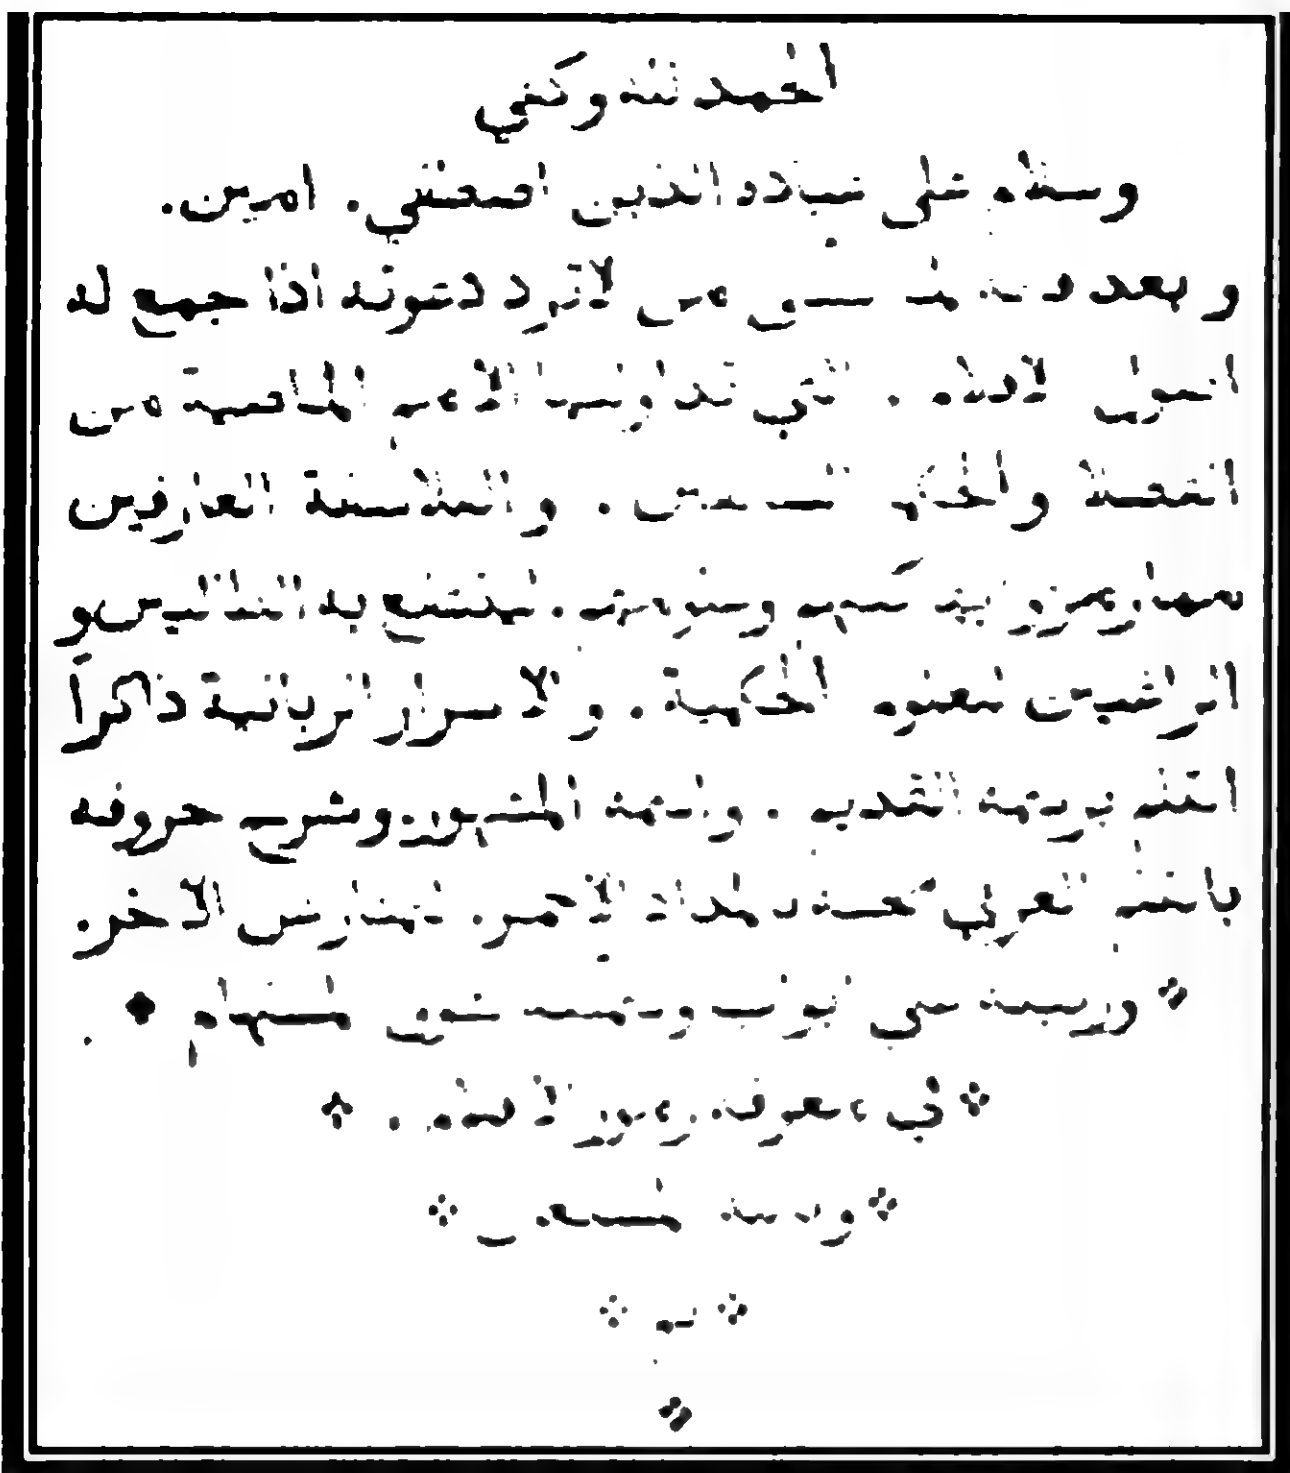 الحمد لله وكفي
وسلام على عباده الذين اصطفي. امين.
وبعد فانه لما سالني من لا ترد دعوته اذا جمع له
اصول الاقلام. التي تداولتها الامم الماضية من
الفضلا والحكما السالفين. والفلاسفة العارفين
مما رمزوا بها كتبهم وعلومهم. لينتفع به الطالبين و
الراغبين لعلوم الحكمية. والاسرار الربانية ذاكراً
القلم برسمه القديم. واسمه المشهور. وشرح حروفه
بالقلم العربي تحته بالمداد الاحمر. ليمتاز من الاخر.
ورتبته على ابواب وسميته شوق المستهام
في معرفة رموز الاقلام.
وبالله المستعان